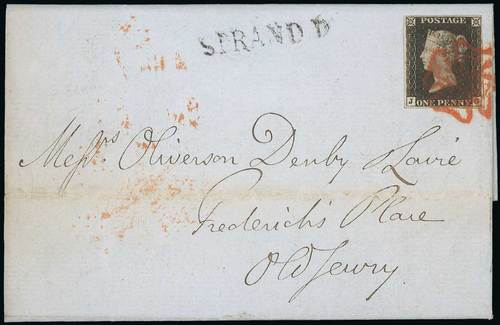 STRAND D
POSTAGE
ONE PENNY
Messrs Oliverson Denby & Lavie
Frederick's Place
Old Jewry